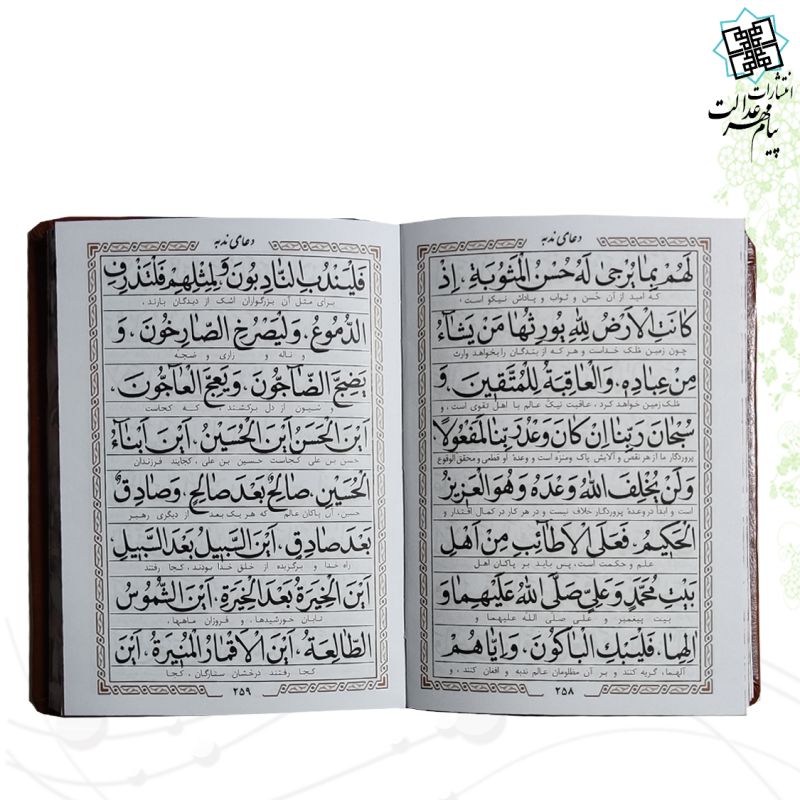 انتشارات
پیام مهر عدالت
دعای ندبه
لَهُمْ بِمَا يُرْجىٰ لَهُ حُسْنُ الْمَثُوبَةِ، اِذْ
که امید از آن حُسن و ثواب و پاداش نیکو است،
كانَتِ الْاَرْضُ لِلّٰهِ يُورِثُها مَنْ يَشٰآءُ
چون زمین مُلک خداست و هر که از بندگان را بخواهد وارث
مِنْ عِبادِهِ، وَالْعاقِبَةُ لِلْمُتَّقينَ، وَ
مُلک زمین خواهد کرد، عاقبت نیک عالم با اهل تقوی است، و
سُبْحانَ رَبِّنا اِنْ كانَ وَعْدُ رَبِّنا لَمَفْعُولًا،
پروردگار ما از هر نقص و آلایش پاک و منزه است و وعدهٔ او قطعی و محقق الوقوع
وَلَنْ يُخْلِفَ اللّٰهُ وَعْدَهُ وَهُوَ الْعَزيزُ
است و ابداً در وعدهٔ پروردگار خلاف نیست و در هر کار در کمال اقتدار و
الْحَكيمُ. فَعَلَى الْاَطآئِبِ مِنْ اَهْلِ
علم و حکمت است، پس باید بر پاکان اهل
بَيْتِ مُحَمَّدٍ وَعَلِيٍّ صَلَّى اللّٰهُ عَلَيْهِما وَ
بیت پیغمبر و علی صلی الله علیهما و
الِهِما، فَلْيَبْكِ الْباكُونَ، وَاِيّاهُمْ
آلهما، گریه کنند و بر آن مظلومان عالم ندبه و افغان کنند، و
۲۵۸
دعای ندبه
فَلْيَنْدُبِ النّادِبُونَ وَلِمِثْلِهِمْ فَلْتَذْرِفِ
برای مثل آن بزرگواران اشک از دیدگان بارند،
الدُّمُوعُ، وَلْيَصْرُخِ الصّارِخُونَ، وَ
و ناله و زاری و ضجه
يَضِجَّ الضّآجُّونَ، وَيَعِجَّ الْعآجُّونَ.
و شیون از دل برکشند، که کجاست
اَيْنَ الْحَسَنُ اَيْنَ الْحُسَيْنُ، اَيْنَ اَبْنآءُ
حسن بن علی کجاست حسین بن علی، کجایند فرزندان
الْحُسَيْنِ، صالِحٌ بَعْدَ صالِحٍ، وَصادِقٌ
حسین، آن پاکان عالم که هر یک بعد از دیگری رهبر
بَعْدَ صادِقٍ، اَيْنَ السَّبيلُ بَعْدَ السَّبيلِ
راه خدا و برگزیده از خلق خدا بودند، کجا رفتند
اَيْنَ الْخِيَرَةُ بَعْدَ الْخِيَرَةِ، اَيْنَ الشُّمُوسُ
تابان خورشیدها، و فروزان ماهها،
الطّالِعَةُ، اَيْنَ الْاَقْمارُ الْمُنيرَةُ، اَيْنَ
کجا رفتند درخشان ستارگان، کجا
۲۵۹